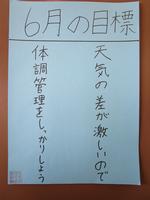 6月の目標
天気の差が激しいので
体調管理をしっかりしよう